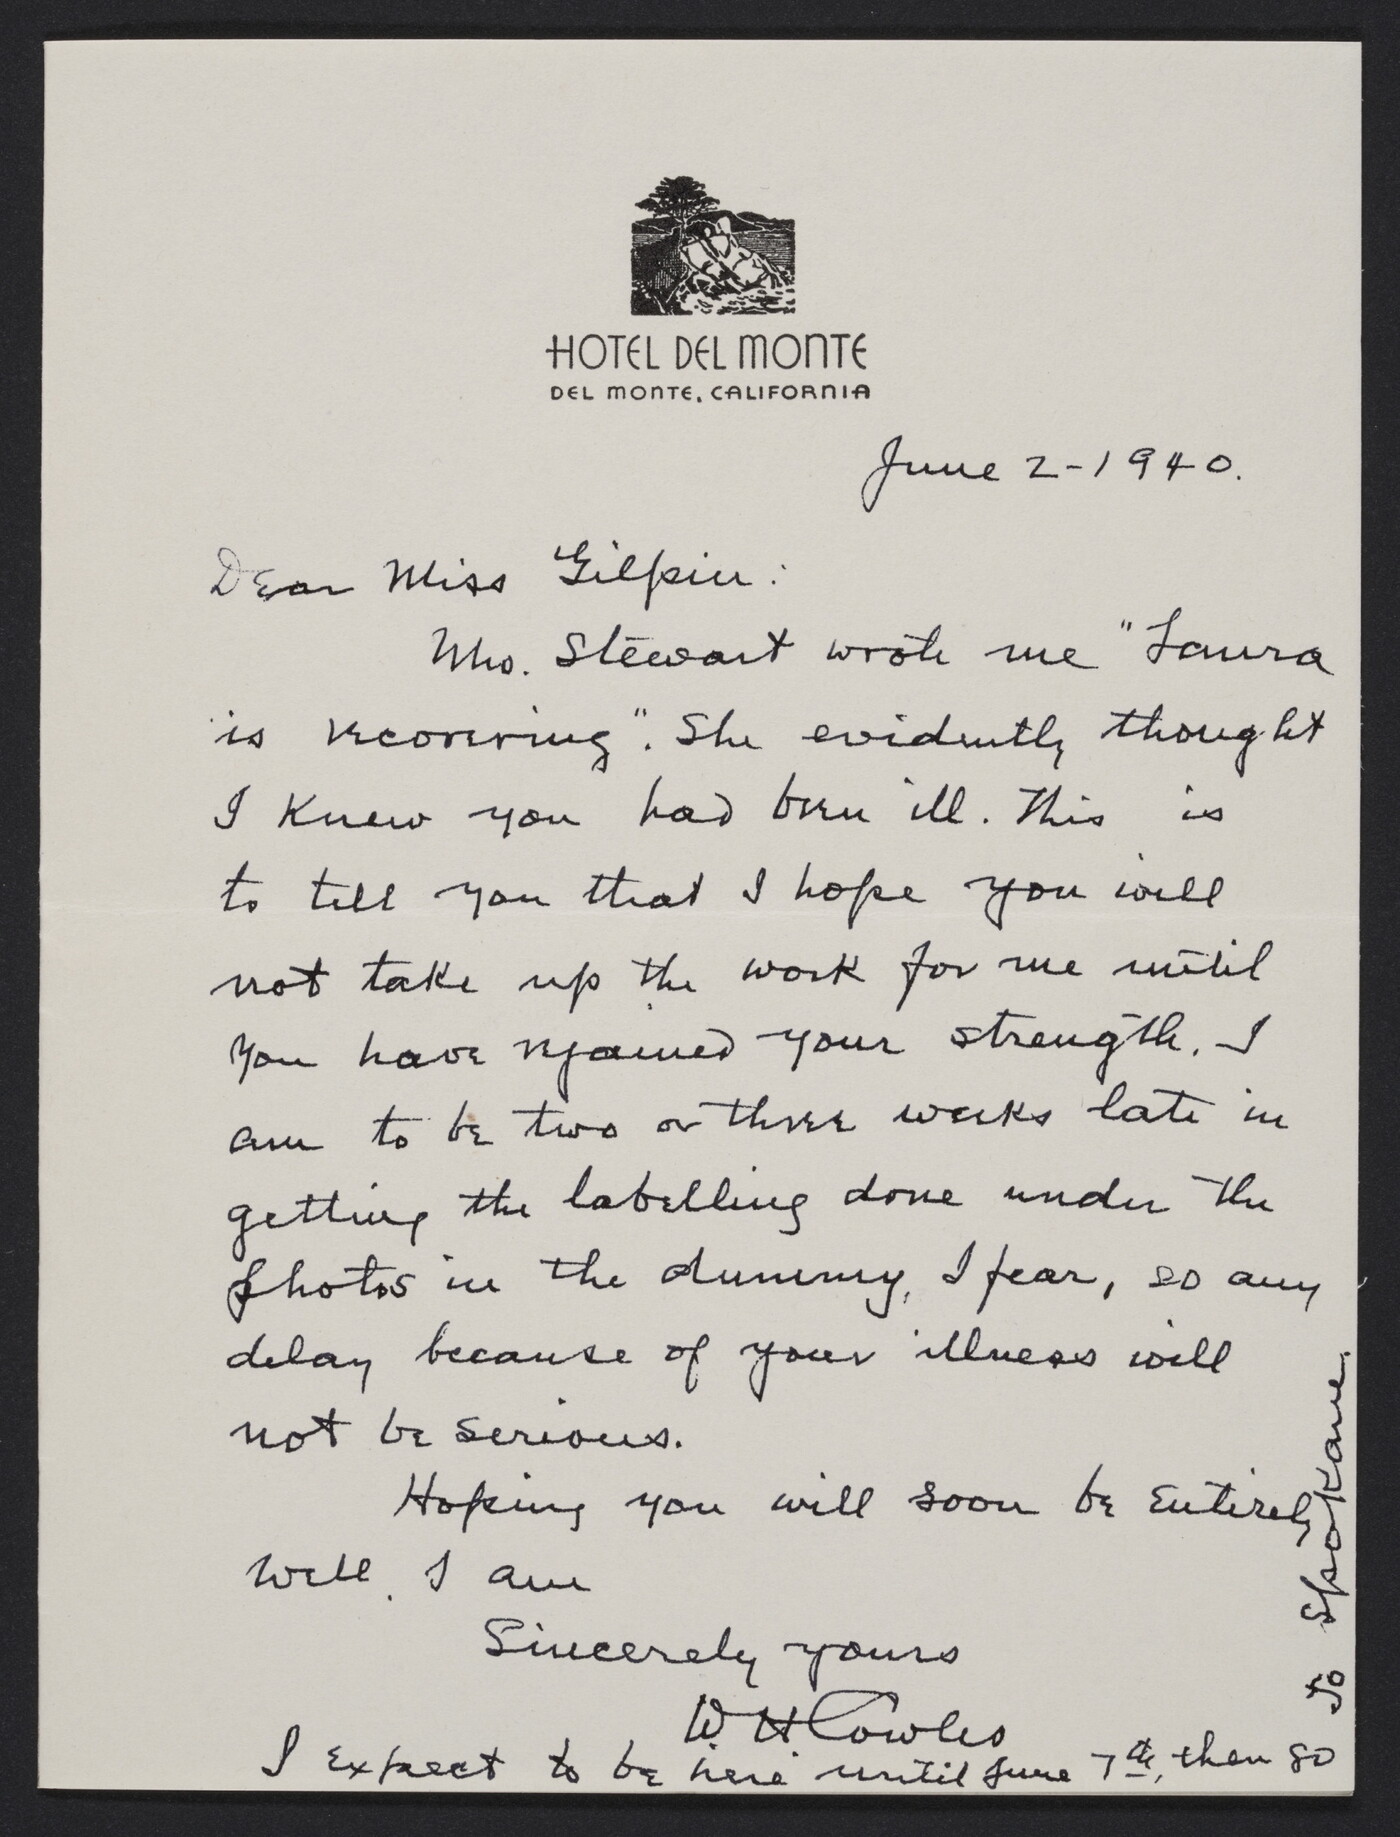 HOTEL DEL MONTE
DEL MONTE, CALIFORNIA
June 2-1940.
Dear Miss Gilpin:
Mrs. Stewart wrote me "Laura
is recovering". She evidently thought
I knew you had been ill. This is
to tell you that I hope you will
not take up the work for me until
you have regained your strength. I
am to be two or three weeks late in
getting the labelling done under the
photos in the dummy, I fear, so any
delay because of your illness will
not be serious.
Hoping you will soon be entirely
well, I am
Sincerely yours
W. H. Cowles
I expect to be here until June 7th, then go
to Spokane.